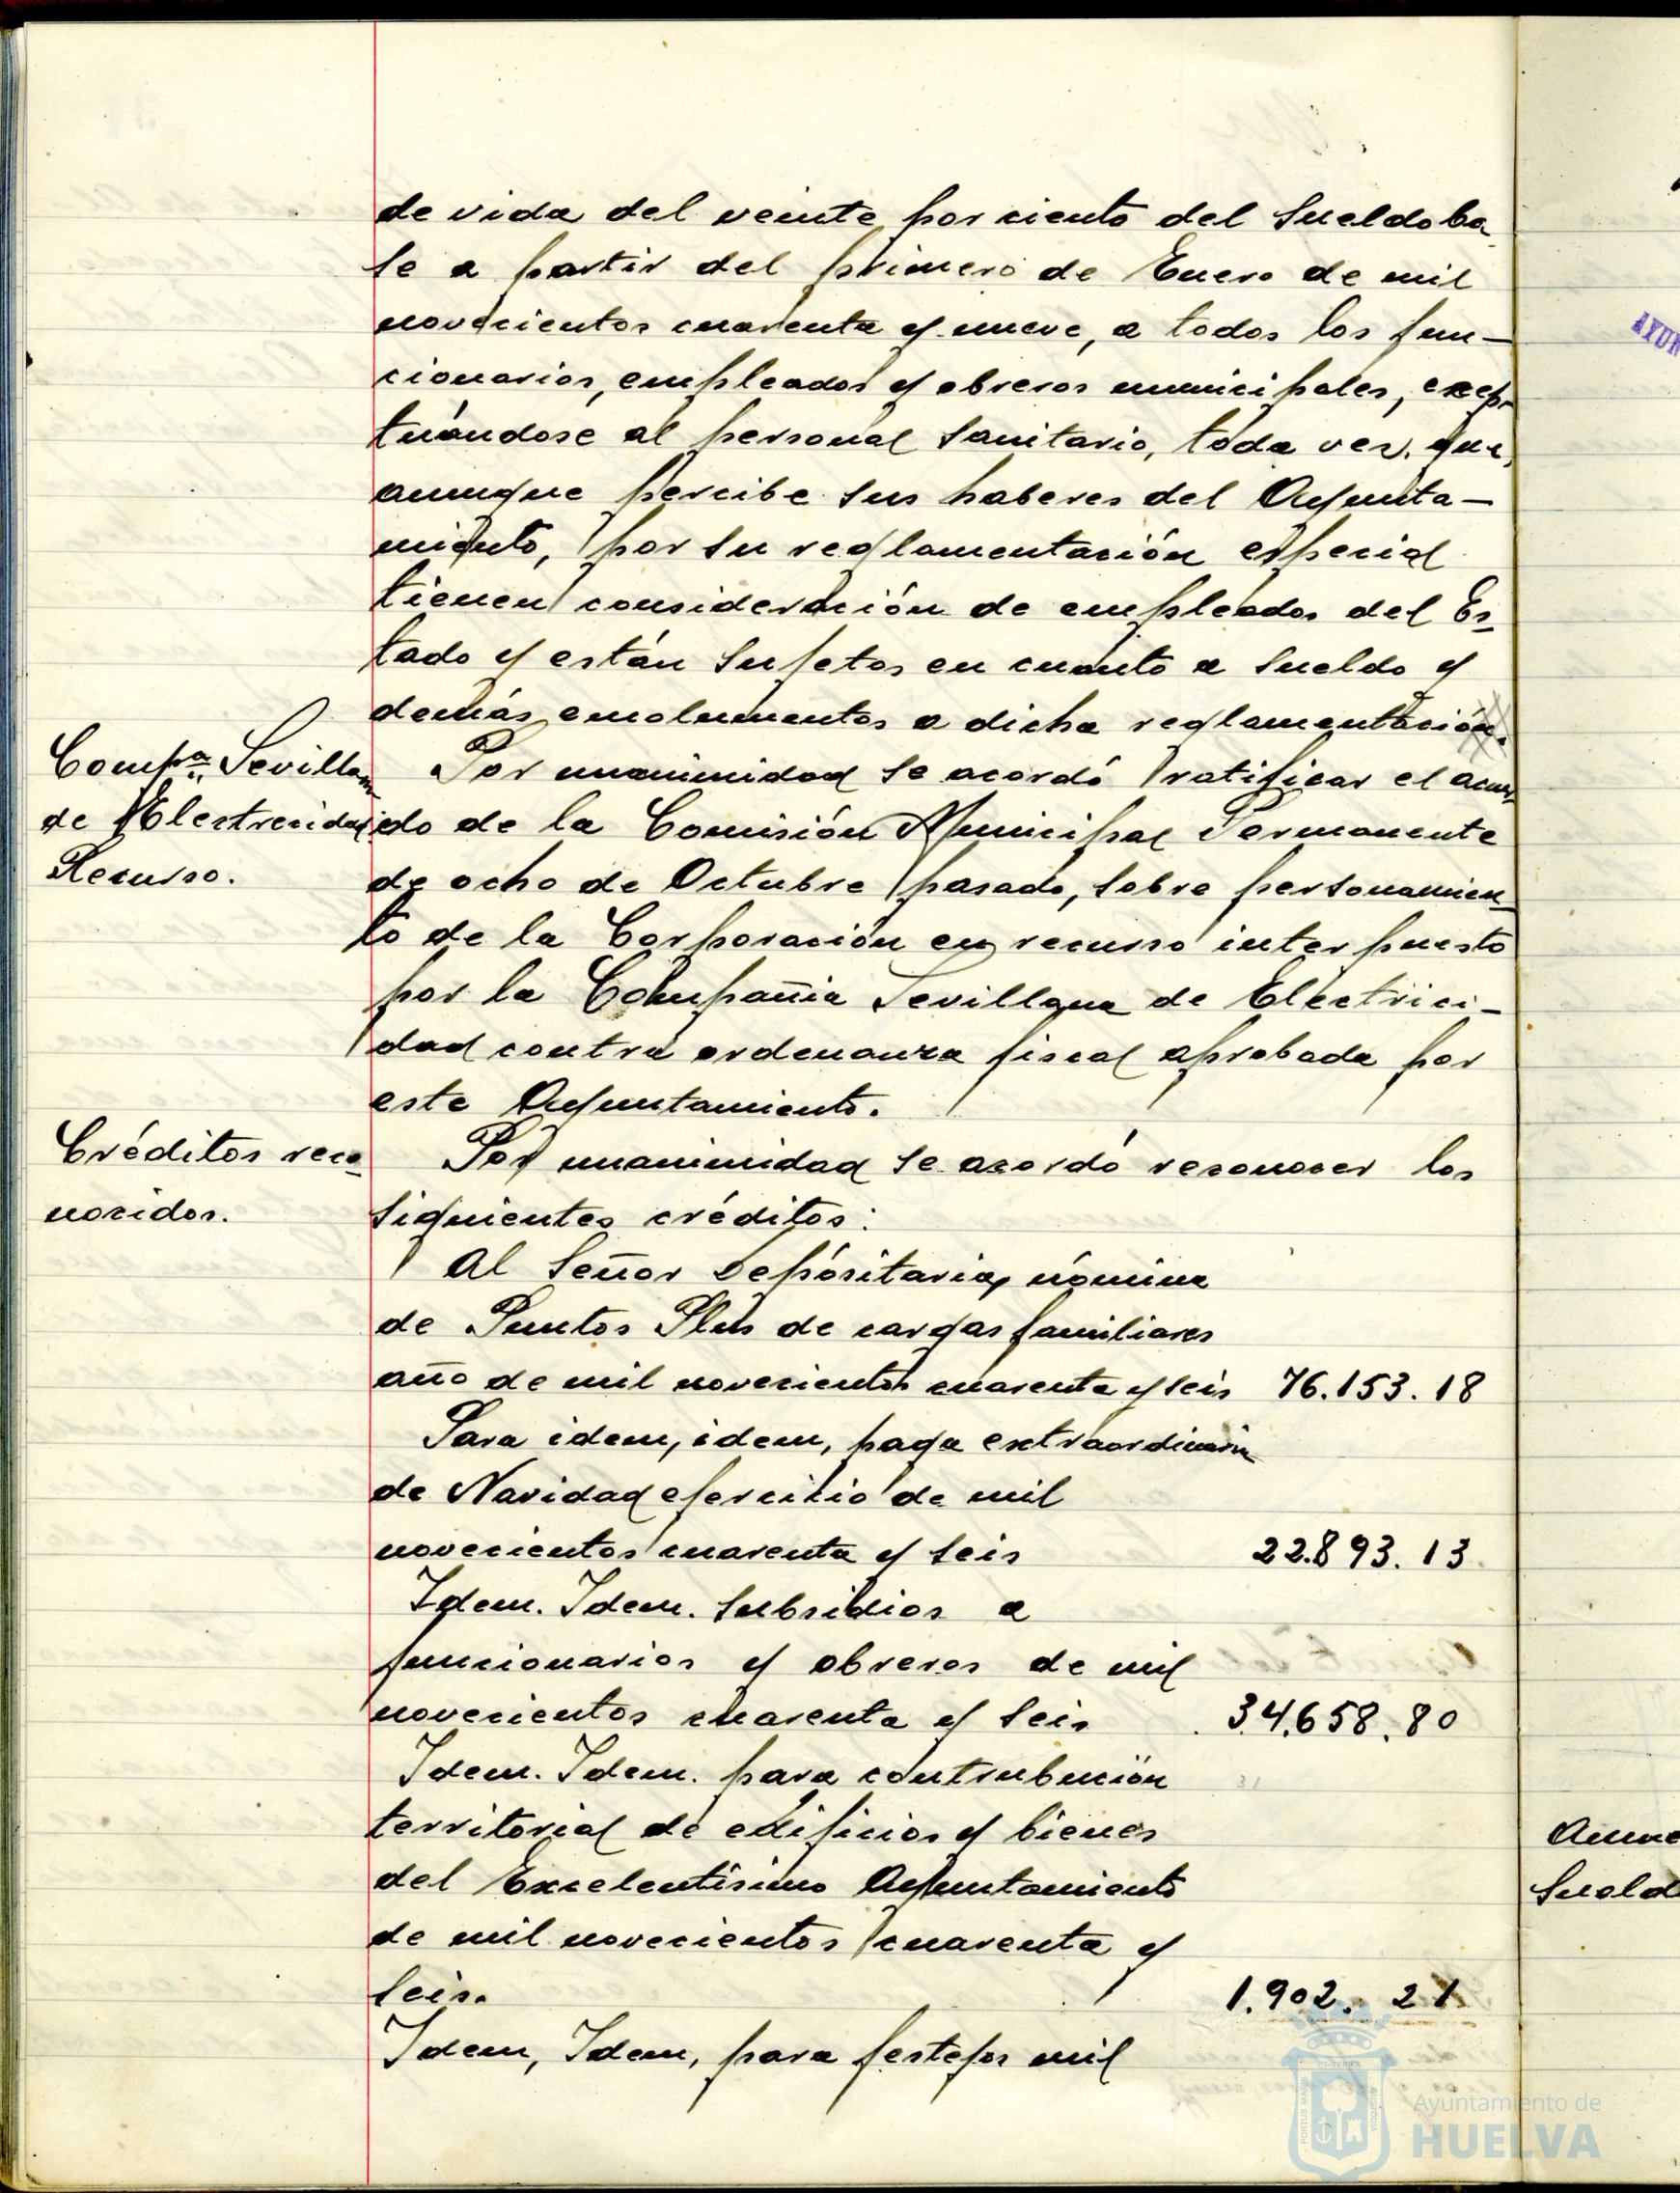 de vida del veinte por ciento del sueldo ba-
se a partir del primero de Enero de mil
novecientos cuarenta y nueve, a todos los fun-
cionarios, empleados y obreros municipales, excep-
tuándose al personal sanitario, toda vez que,
aunque percibe sus haberes del Ayunta-
miento, por su reglamentación especial
tienen consideración de empleados del Es-
tado y están sujetos en cuanto a sueldo y
demás emolumentos a dicha reglamentación.
Compª. Sevillana
de Electrecidad
Recurso.
Por unanimidad se acordó ratificar el acuer-
do de la Comisión Municipal Permanente
de ocho de Octubre pasado, sobre personamien-
to de la Corporación en recurso interpuesto
por la Compañia Sevillana de Electrici-
dad contra ordenanza fiscal aprobada por
este Ayuntamiento.
Créditos reco-
nocidos.
Por unanimidad se acordó reconocer los
siguientes créditos:
Al Señor Depósitario, nómina
de Puntos Plus de cargas familiares
año de mil novecientos cuarenta y seis 76.153.18
Para idem, idem, paga extraordinaria
de Navidad ejercicio de mil
novecientos cuarenta y seis 22.893.13
Idem. Idem. Subsidios a
funcionarios y obreros de mil
novecientos cuarenta y seis 34.658.80
Idem. Idem. para contrubución
territorial de edificios y bienes
del Excelentísimo Ayuntamiento
de mil novecientos cuarenta y
seis. 1.902. 21
Idem, Idem, para festejos mil
Ayuntamiento de
HUELVA